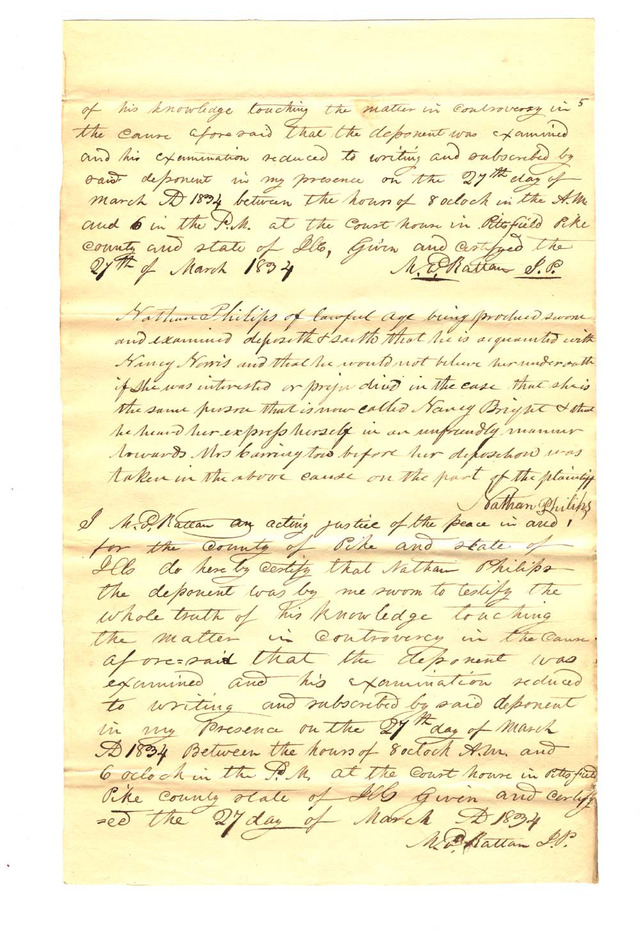 5
of his knowledge touching the matter in controversy in
the cause aforesaid that the deponent was examined
and his examination reduced to writing and subscribed by
said deponent in my presence on the 27th day of
march AD 1834 between the hours of 8 oclock in the A.M
and 6 in the P.M. at the Court house in Pittsfield Pike
county and state of Ills, Given and certifyed the
27th of March 1834 M. E. Rattan J.P.
Nathan Philips of lawful age being produced sworn
and examined deposeth & saith that he is acquainted with
Nancy Norris and that he would not believe her under oath
if she was interested or prejudiced in the case that she is
the same person that is now called Nancy Bright & that
he heard her express herself in an unfriendly manner
towards Mrs Carrington before her deposition was
taken in the above cause on the part of the plaintiff
Nathan Philips
I M. E. Rattan an acting justice of the peace in and
for the county of Pike and state of
Ills do hereby certify that Nathan Philips
the deponent was by me sworn to testify the
whole truth of his knowledge touching
the matter in controversy in the cause
afore=said that the deponent was
examined and his examination reduced
to writing and subscribed by said deponent
in my presence on the 27th day of March
AD 1834 Between the hours of 8 oclock A.M. and
6 oclock in the P.M. at the Court house in Pittsfield
Pike county state of Ills Given and certify
=ed the 27 day of March AD 1834
M. E. Rattan J.P.